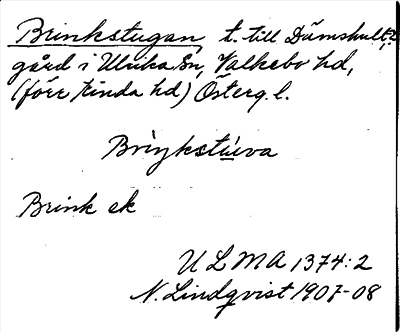 Brinkstugan, t. till Dämshult,
gård i Ulrika Sn, Valkebo hd,
(förr Kinda hd) Österg.l.
Brìŋkstúva
Brink ek
ULMA 1374:2
N. Lindqvist 1907-08